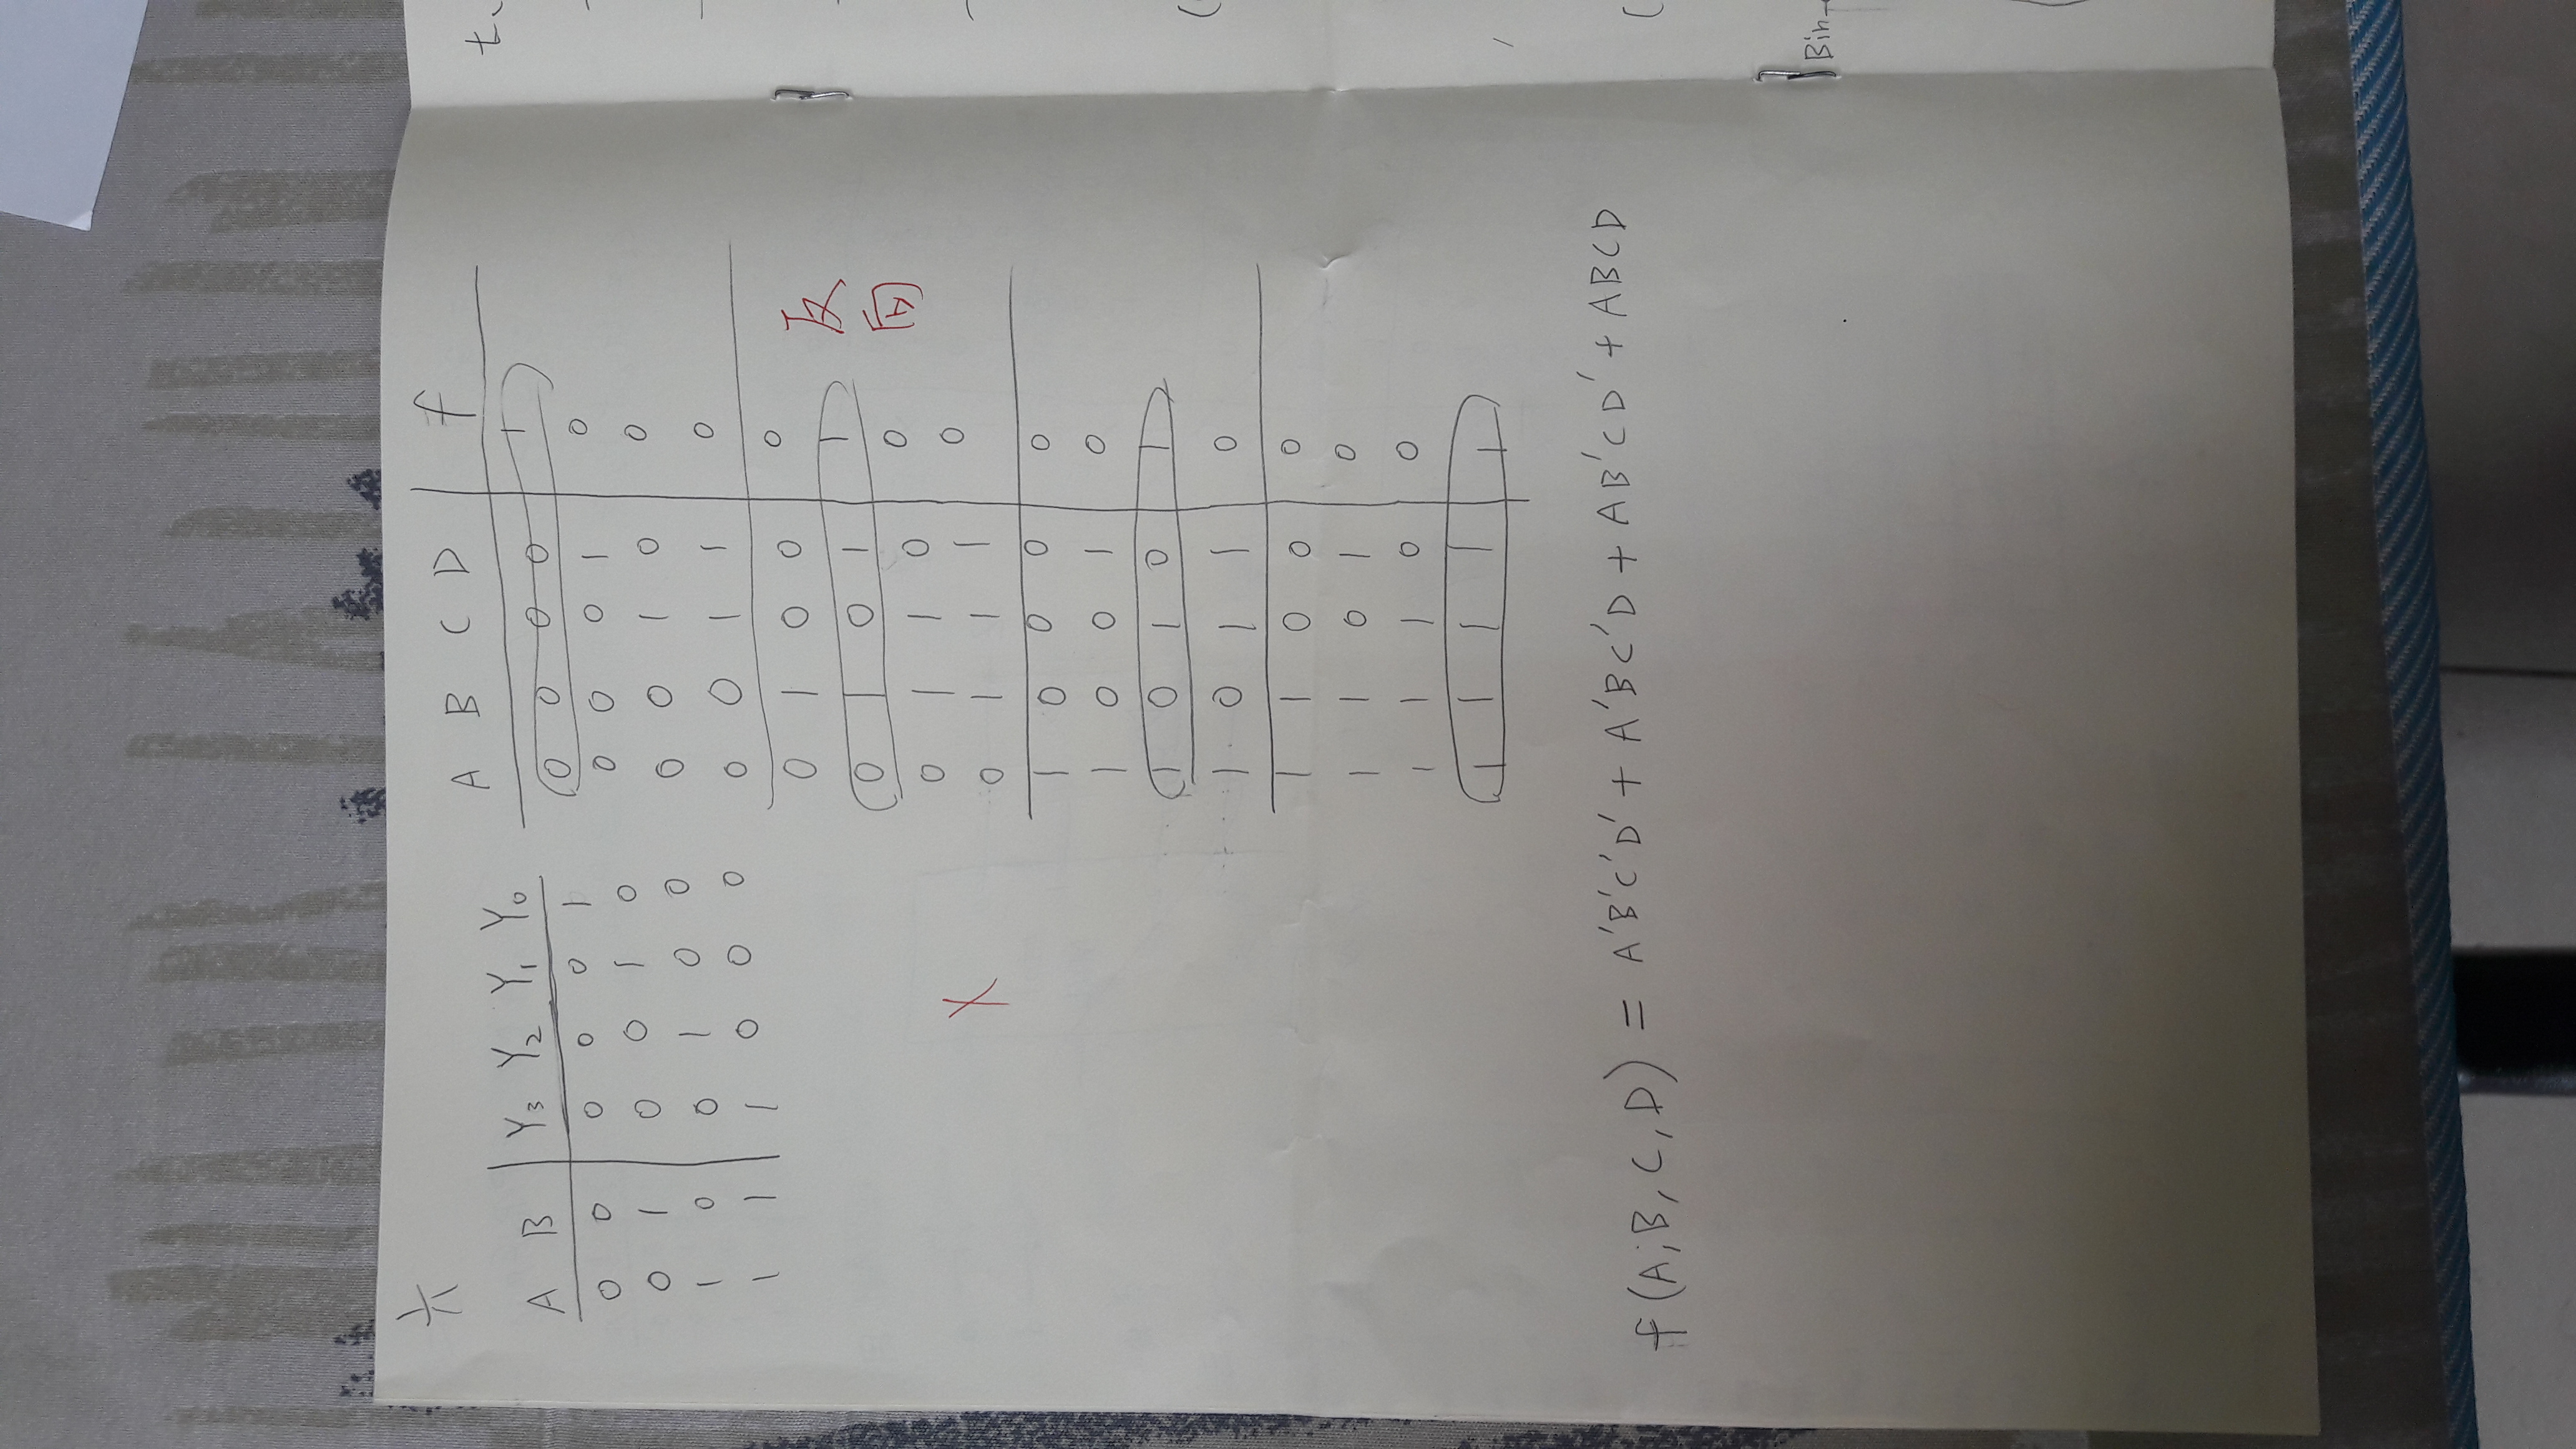 六
A B Y₃ Y₂ Y₁ Y₀
0 0 0 0 0 1
0 1 0 0 1 0
1 0 0 1 0 0
1 1 1 0 0 0
X
A B C D f
0 0 0 0 1
0 0 0 1 0
0 0 1 0 0
0 0 1 1 0
0 1 0 0 0
0 1 0 1 1
0 1 1 0 0
0 1 1 1 0
1 0 0 0 0
1 0 0 1 0
1 0 1 0 1
1 0 1 1 0
1 1 0 0 0
1 1 0 1 0
1 1 1 0 0
1 1 1 1 1
反
向
f(A,B,C,D) = A'B'C'D' + A'BC'D + AB'CD' + ABCD
t、
Bin